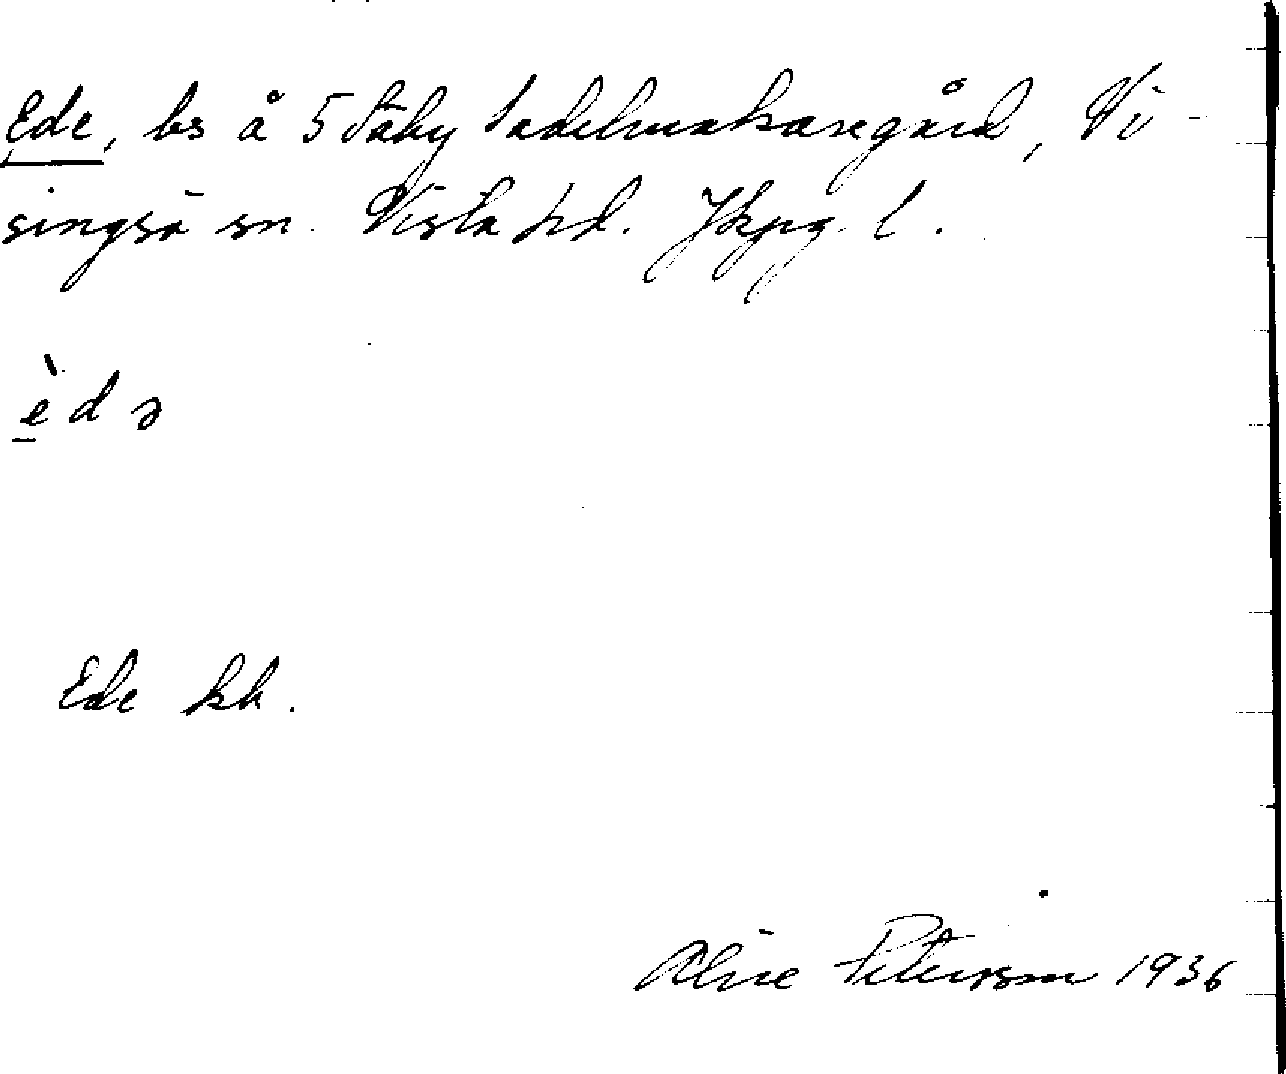 Ede, bs å 5 Säby Sadelmakaregård, Vi-
singsö sn. Vista hd. Jkpg. l.
èdə
Ede kb.
Aline Peterson 1936